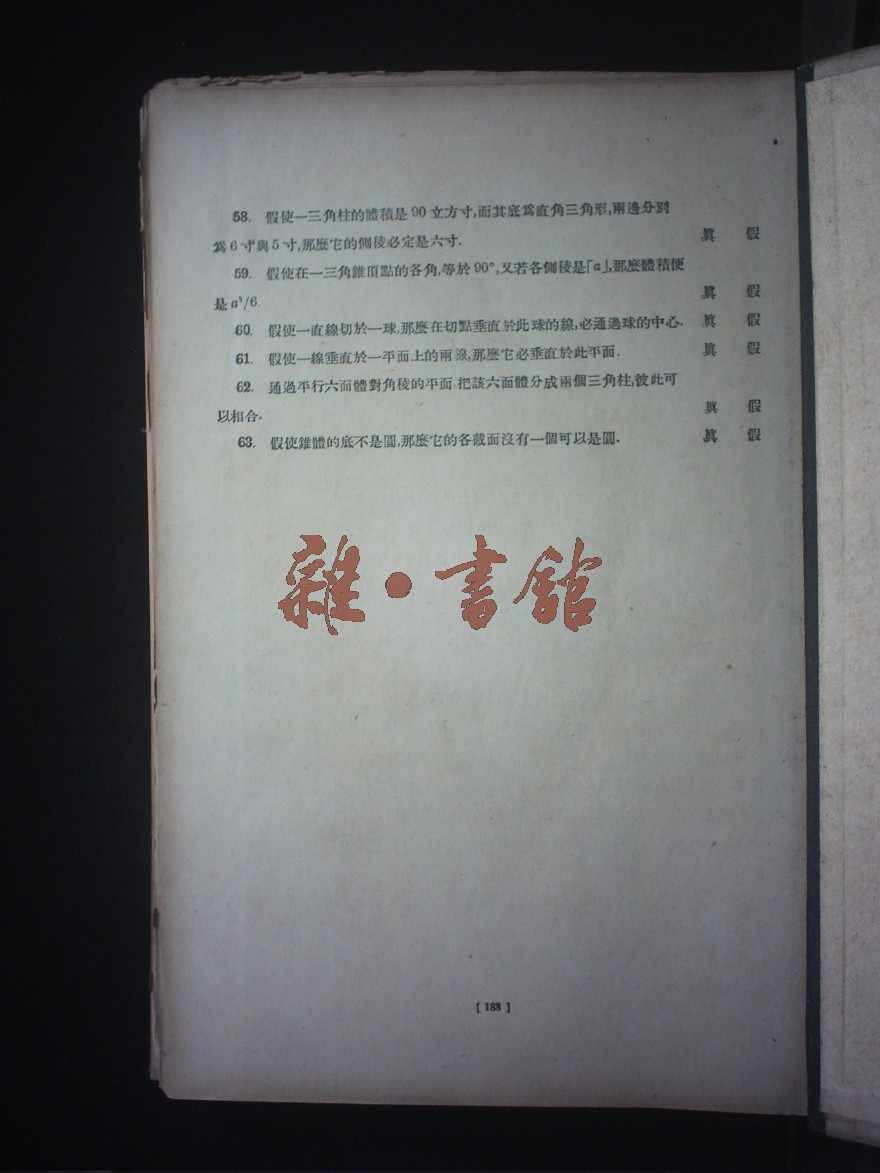 58. 假使一三角柱的體積是 90 立方寸,而其底爲直角三角形,兩邊分別
爲 6 寸與 5 寸,那麼它的側稜必定是六寸. 眞 假
59. 假使在一三角錐頂點的各角,等於 90°,又若各側稜是「a」,那麼體積便
是 a³/6. 眞 假
60. 假使一直線切於一球,那麼在切點垂直於此球的線,必通過球的中心. 眞 假
61. 假使一線垂直於一平面上的兩線,那麼它必垂直於此平面. 眞 假
62. 通過平行六面體對角稜的平面,把該六面體分成兩個三角柱,彼此可
以相合. 眞 假
63. 假使錐體的底不是圓,那麼它的各截面沒有一個可以是圓. 眞 假
雜·書館
[ 188 ]